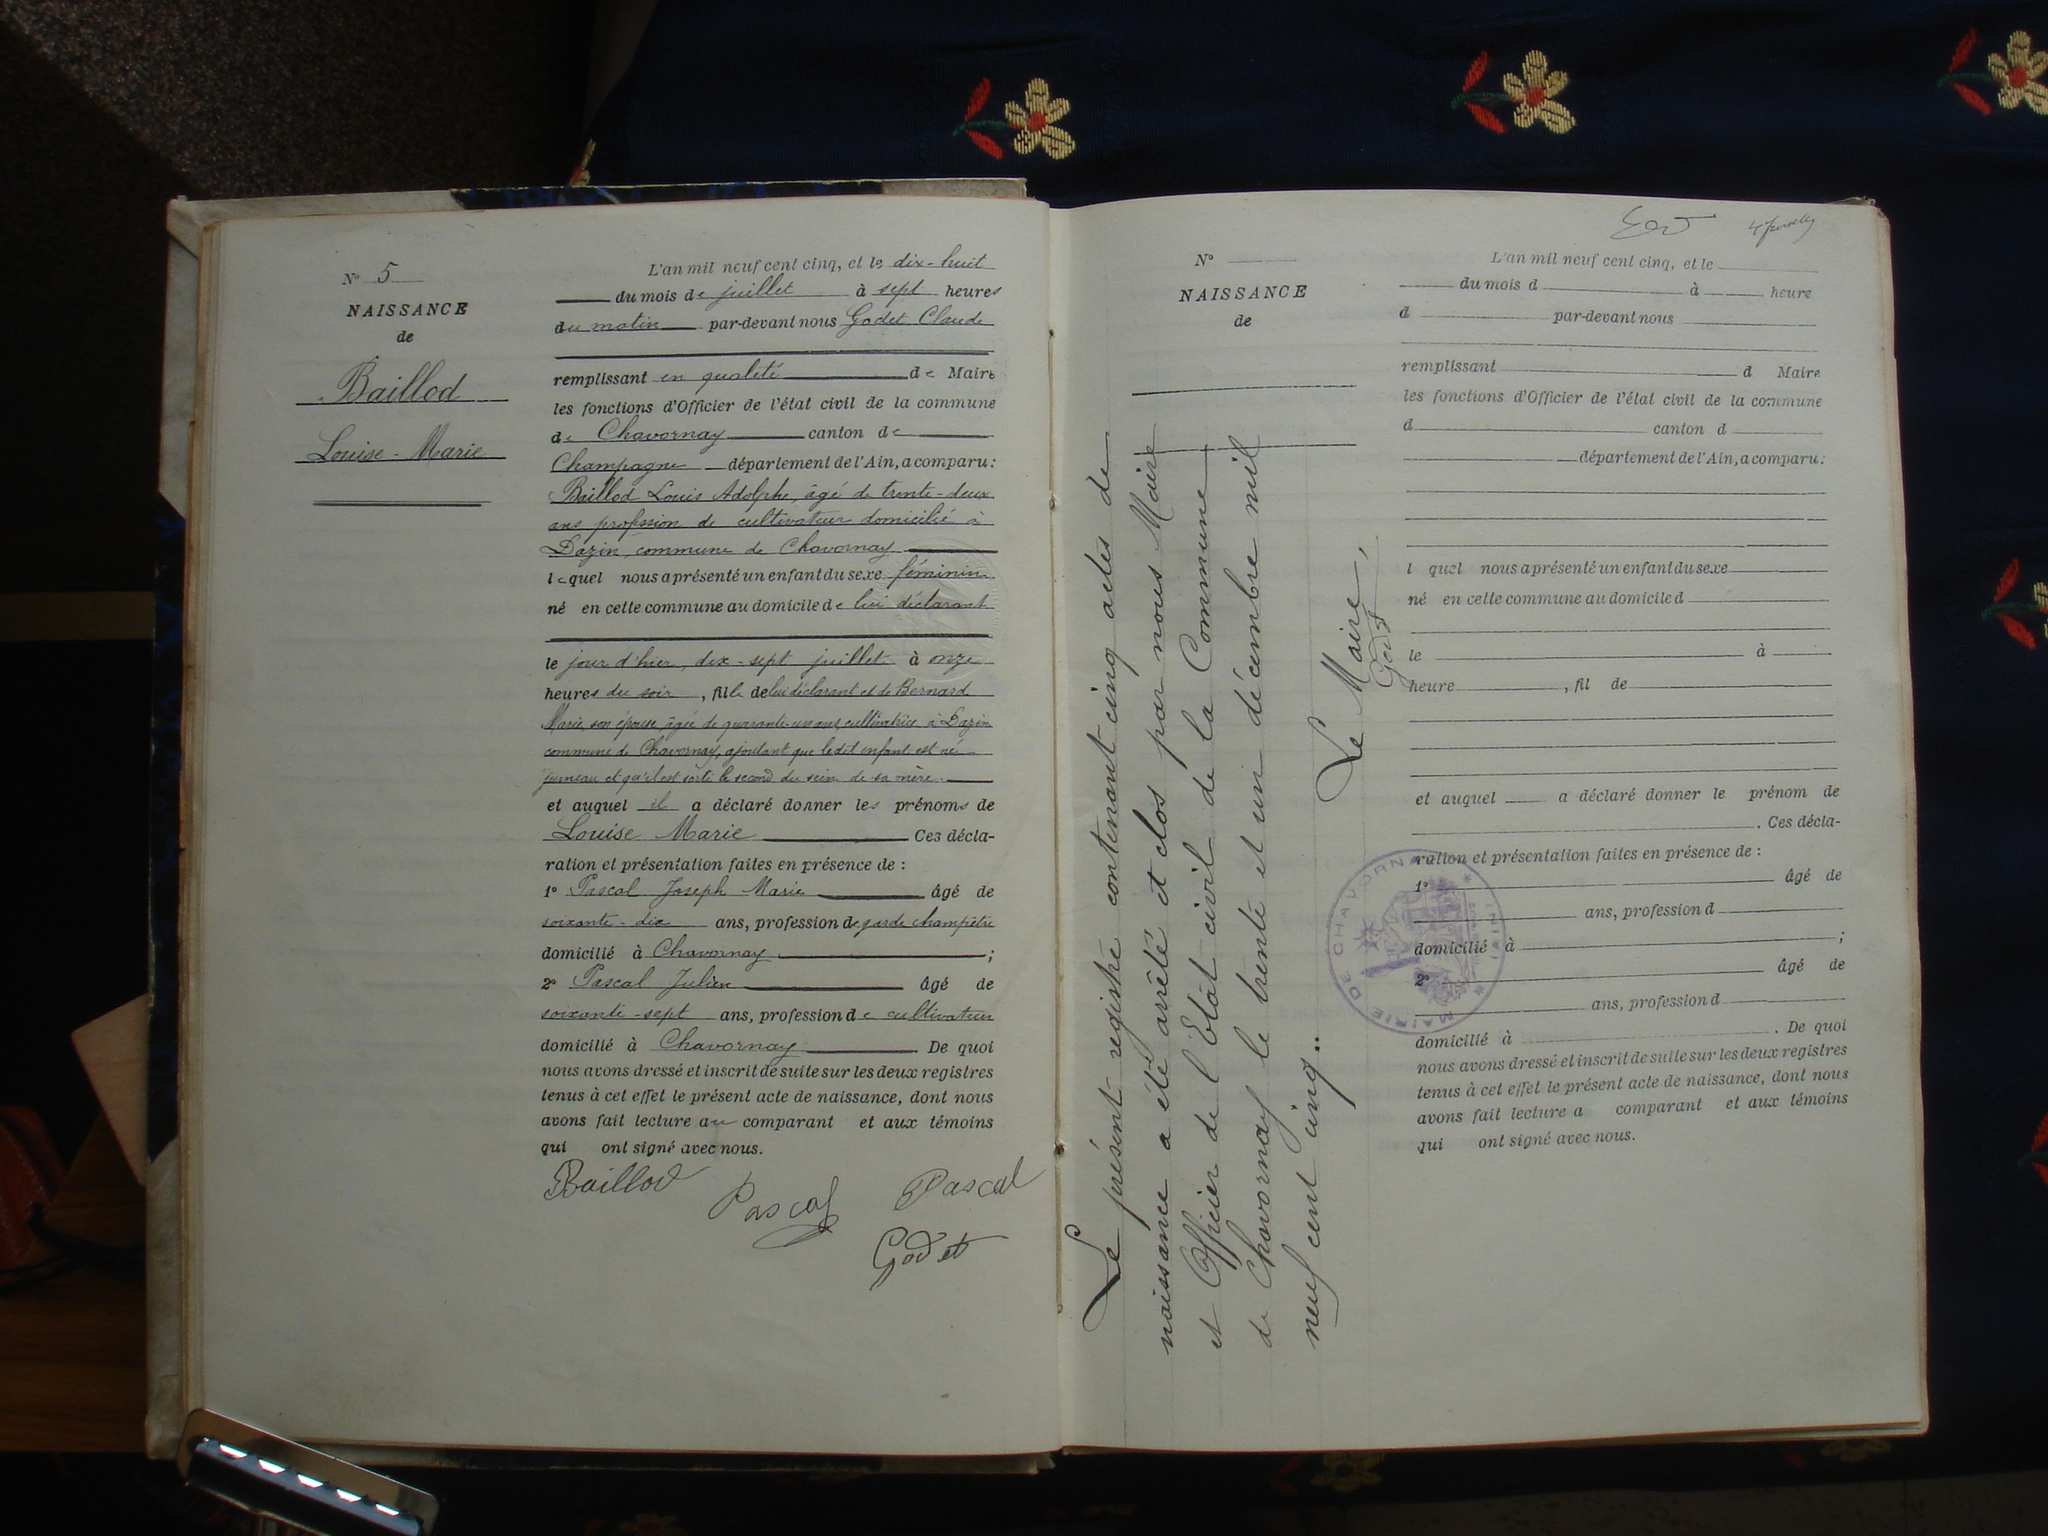 N° 5
NAISSANCE
de
Baillod
Louise-Marie
L'an mil neuf cent cinq, et le dix-huit
du mois de juillet à sept heures
du matin par-devant nous Godet Claude
remplissant en qualité de Maire
les fonctions d'Officier de l'état civil de la commune
de Chavornay canton de
Champagne département de l'Ain, a comparu:
Baillod Louis Adolphe, âgé de trente-deux
ans profession de cultivateur domicilié à
Dazin, commune de Chavornay
lequel nous a présenté un enfant du sexe féminin
né en cette commune au domicile de lui déclarant
le jour d'hier, dix-sept juillet à onze
heures du soir, fille de lui déclarant et de Bernard
Marie, son épouse, âgée de quarante-un ans cultivatrice à Dazin
commune de Chavornay, ajoutant que ledit enfant est né
jumeau et qu'il est sorti le second du sein de sa mère.
et auquel il a déclaré donner les prénoms de
Louise Marie Ces décla-
ration et présentation faites en présence de :
1° Pascal Joseph Marie âgé de
soixante-dix ans, profession de garde champêtre
domicilié à Chavornay ;
2° Pascal Julien âgé de
soixante-sept ans, profession de cultivateur
domicilié à Chavornay . De quoi
nous avons dressé et inscrit de suite sur les deux registres
tenus à cet effet le présent acte de naissance, dont nous
avons fait lecture au comparant et aux témoins
qui ont signé avec nous.
Baillod
Pascal
Pascal
Godet
N°
NAISSANCE
de
L'an mil neuf cent cinq, et le
du mois d à heure
d par-devant nous
remplissant d Maire
les fonctions d'Officier de l'état civil de la commune
d canton d
département de l'Ain, a comparu:
l quel nous a présenté un enfant du sexe
né en cette commune au domicile d
le à
heure , fil de
et auquel a déclaré donner le prénom de
. Ces décla-
ration et présentation faites en présence de :
1° âgé de
ans, profession d
domicilié à ;
2° âgé de
ans, profession d
domicilié à . De quoi
nous avons dressé et inscrit de suite sur les deux registres
tenus à cet effet le présent acte de naissance, dont nous
avons fait lecture a comparant et aux témoins
qui ont signé avec nous.
Le présent registre contenant cinq actes de
naissance a été arrêté et clos par nous Maire
et Officier de l'Etat civil de la Commune
de Chavornay le trente et un décembre mil
neuf cent cinq..
Le Maire,
Godet
MAIRIE DE CHAVORNAY * (AIN) *